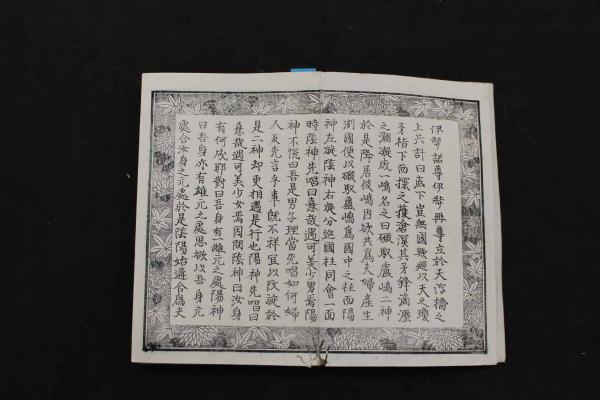 伊弉諾尊伊弉冊尊立於天浮橋之
上共計曰底下豈無國歟廼以天之瓊
矛指下而探之獲滄溟其矛鋒滴瀝
之潮凝成一嶋名之曰磤馭盧嶋二神
於是降居彼嶋因欲共爲夫婦產生
洲國便以磤馭盧嶋爲國中之柱而陽
神左旋陰神右旋分巡國柱同會一面
時陰神先唱曰憙哉遇可美少男焉陽
神不悅曰吾是男子理當先唱如何婦
人反先言乎事旣不祥宜以改旋於
是二神却更相遇是行也陽神先唱曰
憙哉遇可美少女焉因問陰神曰汝身
有何成耶對曰吾身有雌元之處陽神
曰吾身亦有雄元之處思欲以吾身元
處合汝身之元處於是陰陽始遘合爲夫